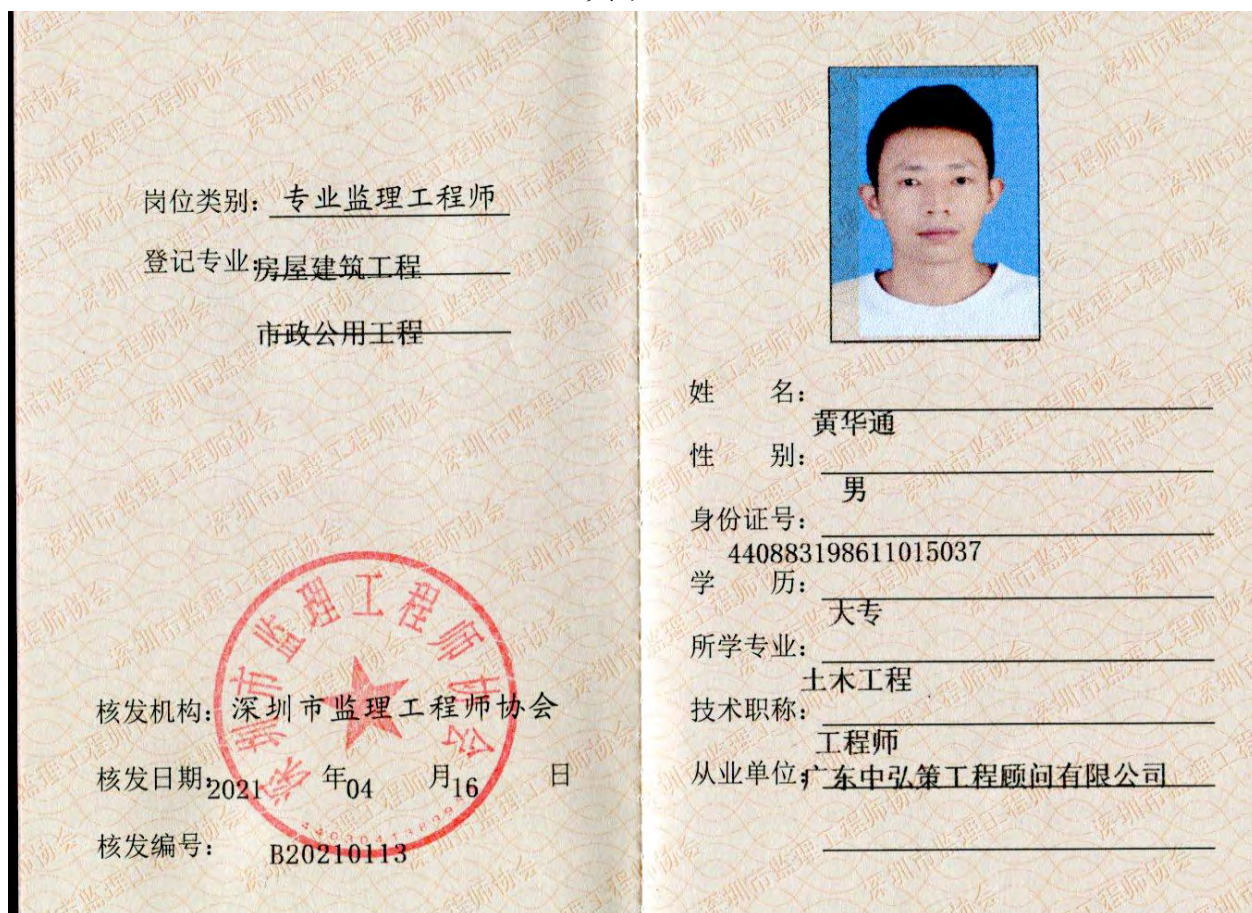 岗位类别: 专业监理工程师
登记专业: 房屋建筑工程
市政公用工程
深圳市监理工程师协会
核发机构: 深圳市监理工程师协会
核发日期: 2021 年 04 月 16 日
核发编号: B20210113
姓 名:
黄华通
性 别:
男
身份证号:
440883198611015037
学 历:
大专
所学专业:
土木工程
技术职称:
工程师
从业单位: 广东中弘策工程顾问有限公司